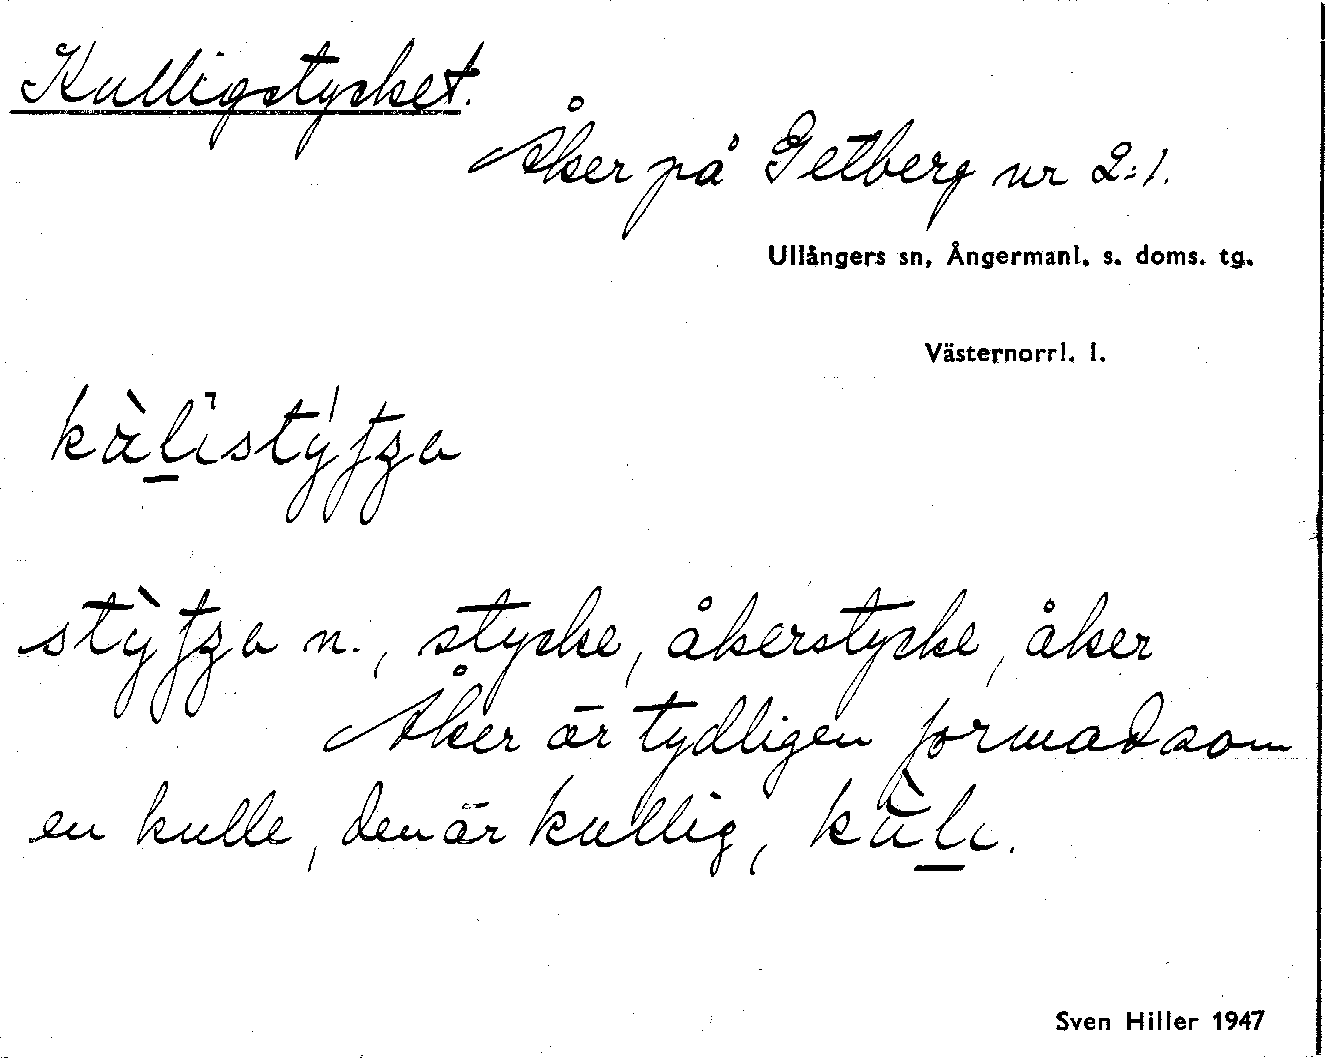 Kulligstycket.
Åker på Getberg nr 2:1.
Ullångers sn, Ångermanl. s. doms. tg.
Västernorrl. l.
stycke, åkerstycke, åker
Åker är tydligen formad som
en kulle, den är kullig,
Sven Hiller 1947